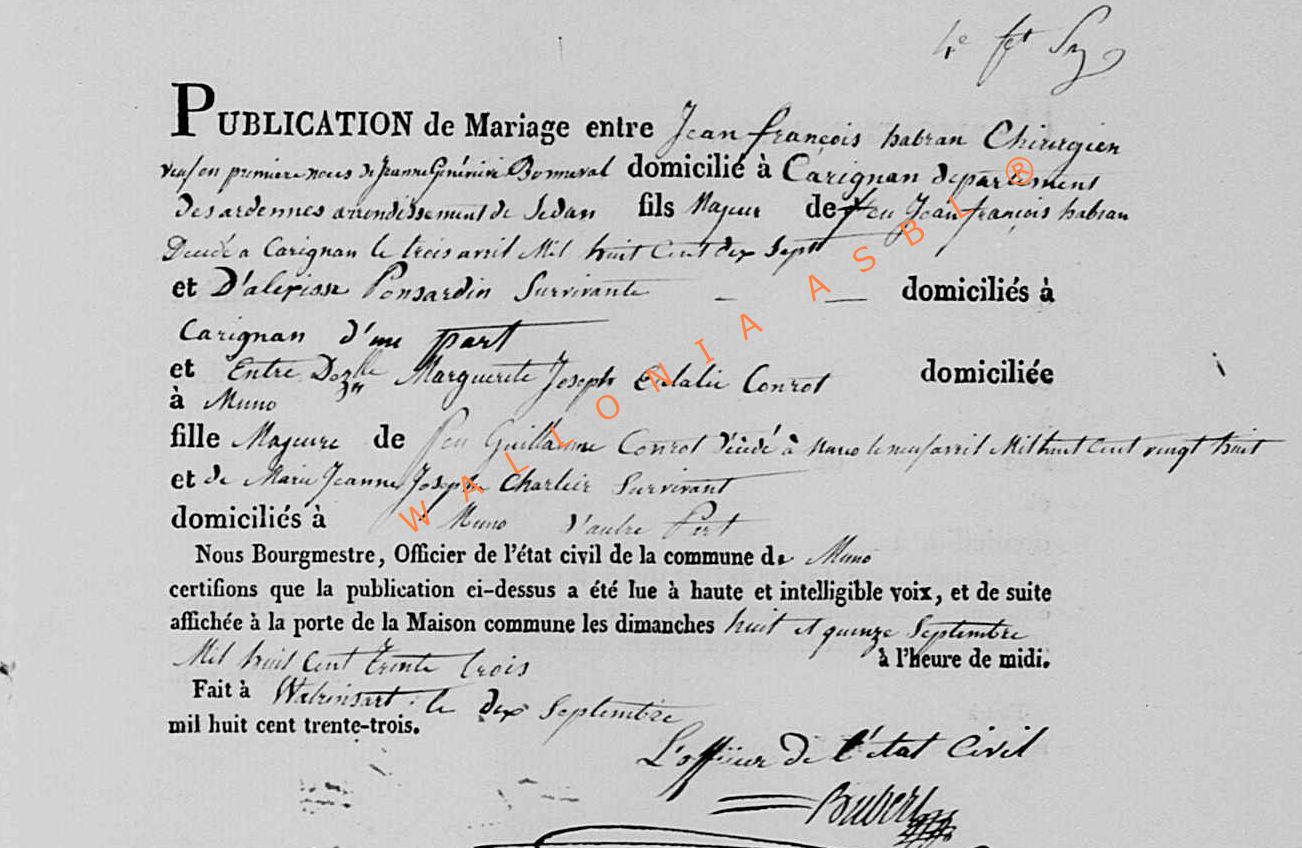 PUBLICATION de Mariage entre Jean françois habran Chirurgien
veuf en premiere noces de Jeanne Généviève Bonneval domicilié à Carignan departement
des ardennes arrondissement de Sedan fils Majeur de feu Jean françois habran
Décédé a Carignan le trois avril Mil huit Cent dix Sept
et D'alexisse Ponsardin Survivante domiciliés à
Carignan d'une part
et Entre Dlle Marguerite Joseph Eulalie Conrot domiciliée
à Muno
fille Majeure de feu Guillaume Conrot décédé à Muno le neuf avril Mil huit Cent vingt huit
et de Marie Jeanne Joseph Charlier Survivant
domiciliés à Muno d'autre Part
Nous Bourgmestre, Officier de l'état civil de la commune de Muno
certifions que la publication ci-dessus a été lue à haute et intelligible voix, et de suite
affichée à la porte de la Maison commune les dimanches huit et quinze Septembre
Mil huit Cent Trente trois à l'heure de midi.
Fait à le dix Septembre
mil huit cent trente-trois.
L'officier de l'état Civil
WALLONIA ASBL ®